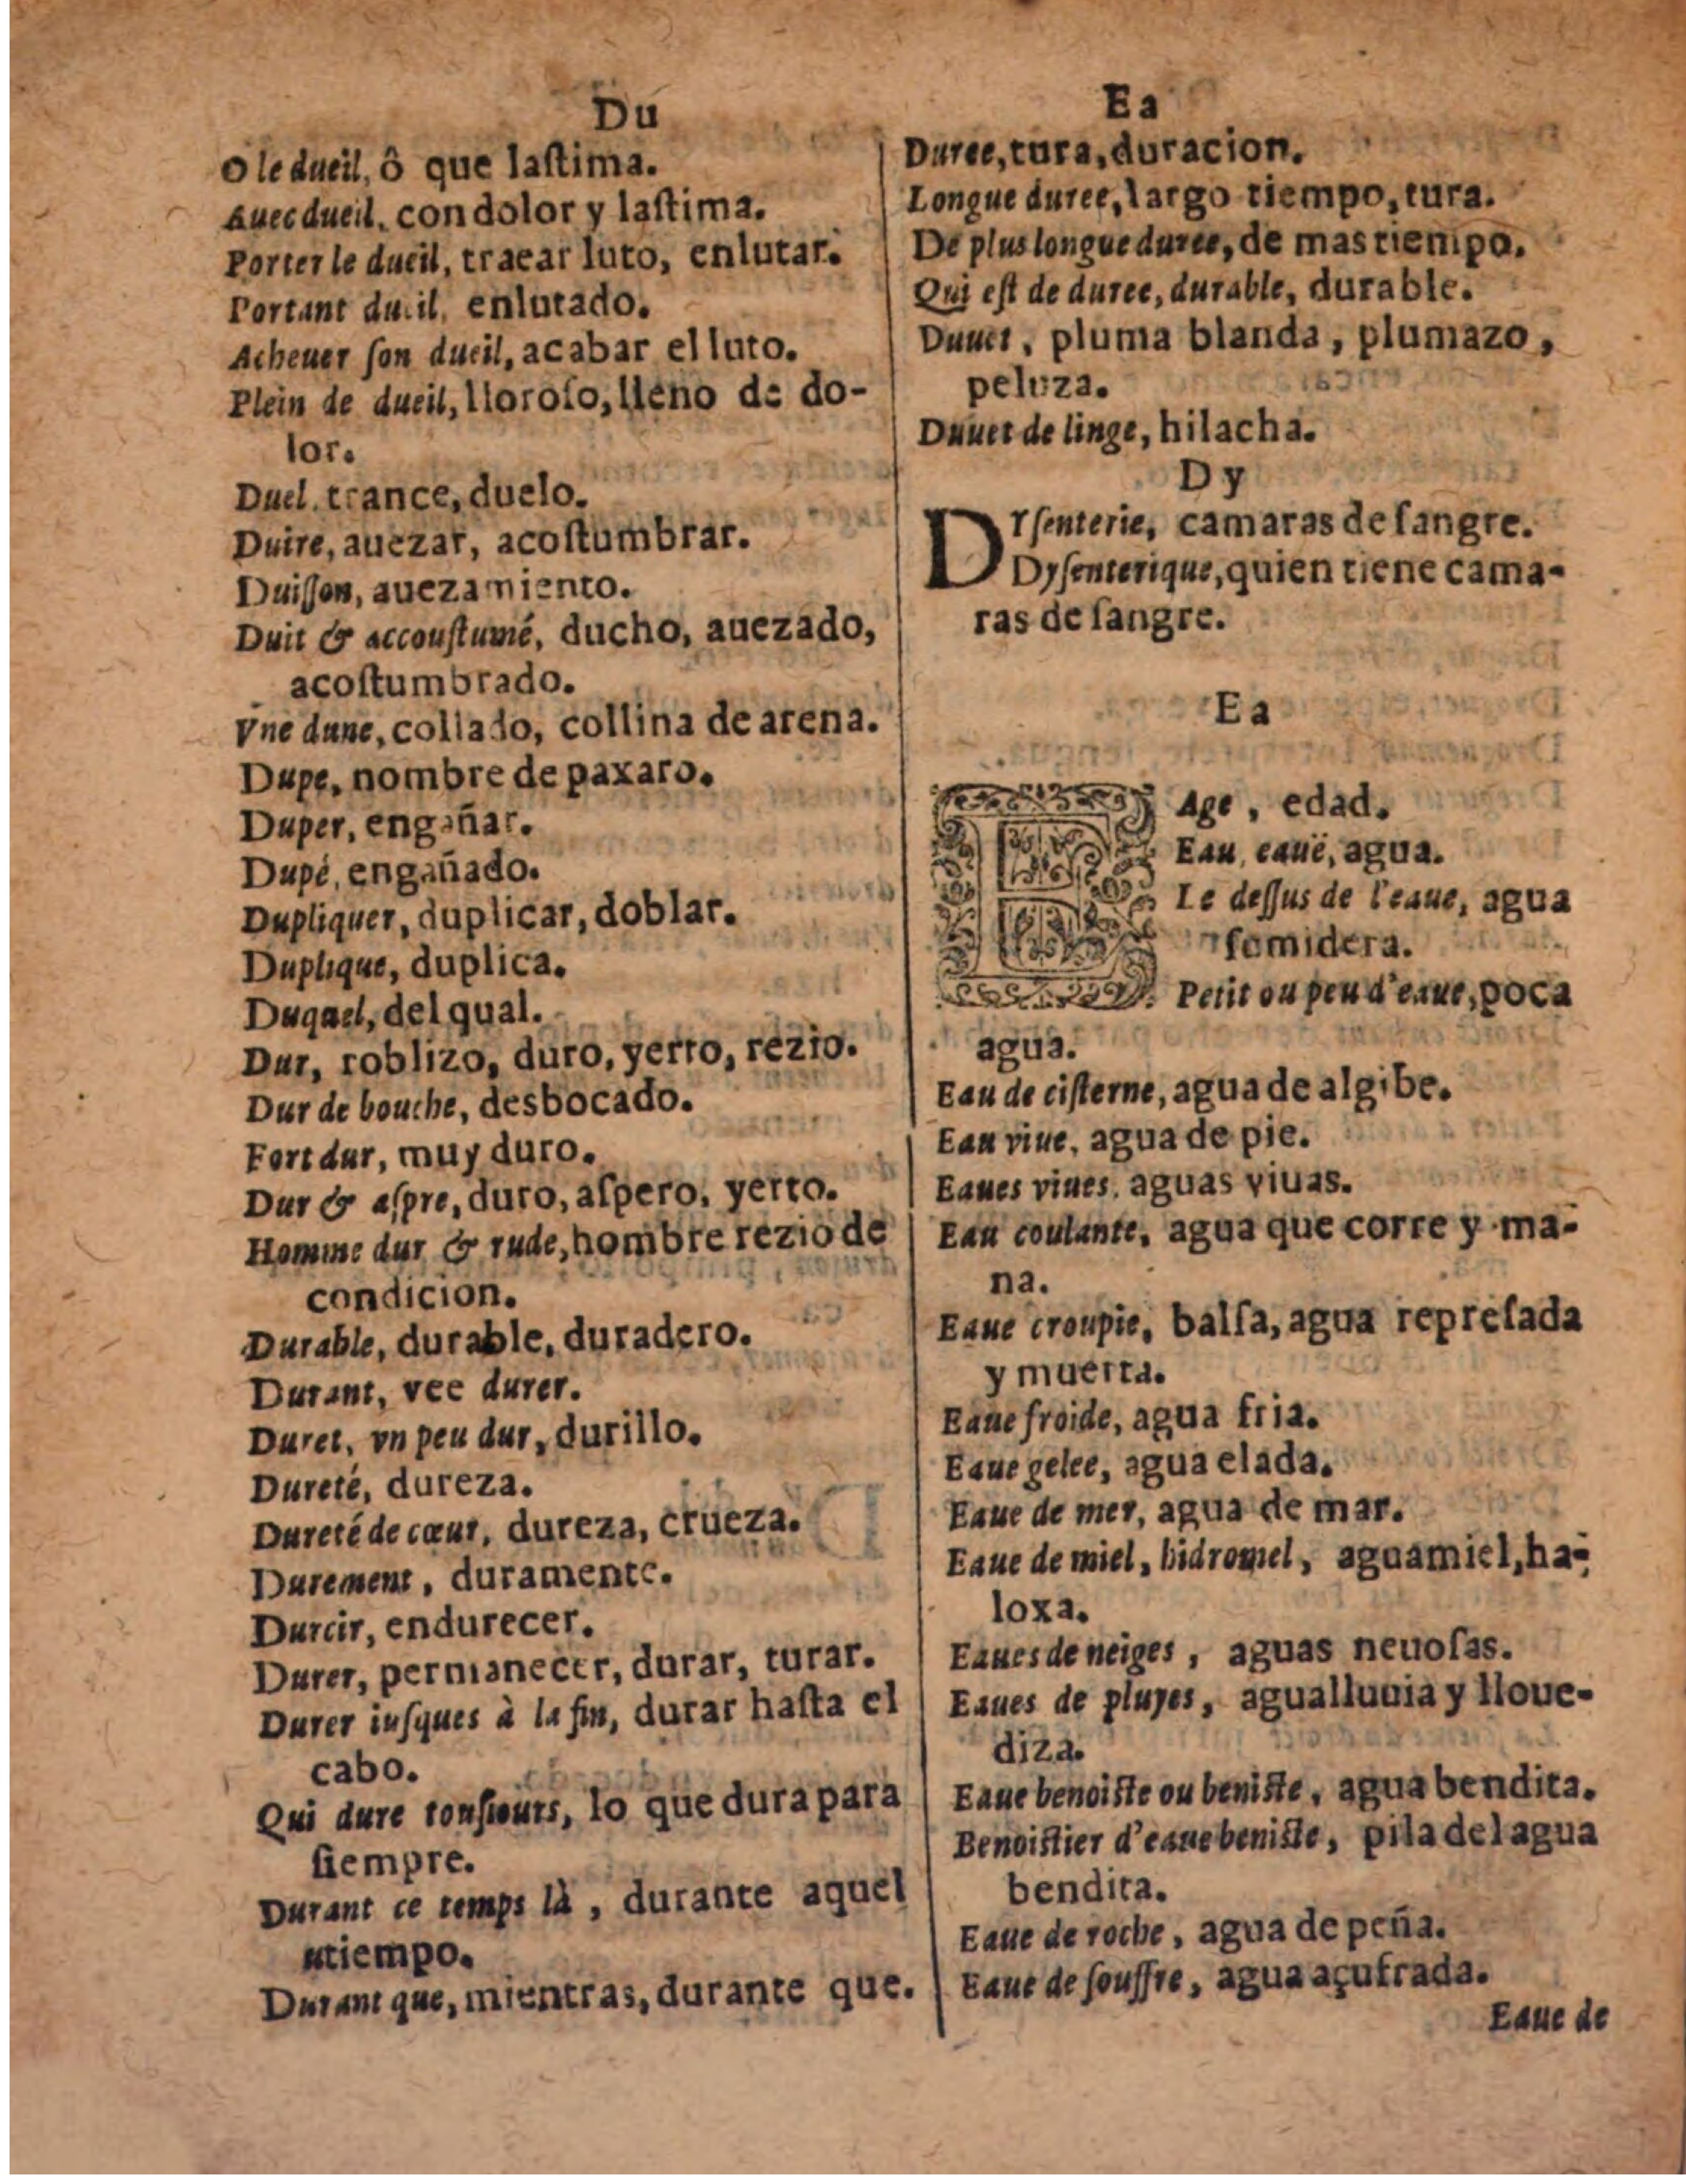 Du
O le dueil, ô que laſtima.
Auec dueil, con dolor y laſtima.
Porter le dueil, traear luto, enlutar.
Portant dueil, enlutado.
Acheuer ſon dueil, acabar el luto.
Plein de dueil, lloroſo, lleno de do-
lor.
Duel, trance, duelo.
Duire, auezar, acoſtumbrar.
Duiſſon, auezamiento.
Duit & accouſtumé, ducho, auezado,
acoſtumbrado.
Vne dune, collado, collina de arena.
Dupe, nombre de paxaro.
Duper, engañar.
Dupé, engañado.
Dupliquer, duplicar, doblar.
Duplique, duplica.
Duquel, del qual.
Dur, roblizo, duro, yerto, rezio.
Dur de bouche, desbocado.
Fort dur, muy duro.
Dur & aſpre, duro, aſpero, yerto.
Homme dur & rude, hombre rezio de
condicion.
Durable, durable, duradero.
Durant, vee durer.
Duret, vn peu dur, durillo.
Dureté, dureza.
Dureté de cœur, dureza, crueza.
Durement, duramente.
Durcir, endurecer.
Durer, permanecer, durar, turar.
Durer iuſques à la fin, durar haſta el
cabo.
Qui dure touſiours, lo que dura para
ſiempre.
Durant ce temps là, durante aquel
tiempo.
Durant que, mientras, durante que.
Ea
Duree, tura, duracion.
Longue duree, largo tiempo, tura.
De plus longue duree, de mas tiempo.
Qui eſt de duree, durable, durable.
Duuet, pluma blanda, plumazo,
peluza.
Duuet de linge, hilacha.
Dy
DYſenterie, camaras de ſangre.
Dyſenterique, quien tiene cama-
ras de ſangre.
Ea
EAge, edad.
Eau, eauë, agua.
Le deſſus de l'eaue, agua
ſomidera.
Petit ou peu d'eaue, poca
agua.
Eau de ciſterne, agua de algibe.
Eau viue, agua de pie.
Eaues viues, aguas viuas.
Eau coulante, agua que corre y ma-
na.
Eaue croupie, balſa, agua repreſada
y muerta.
Eaue froide, agua fria.
Eaue gelee, agua elada.
Eaue de mer, agua de mar.
Eaue de miel, hidromel, aguamiel, ha-
loxa.
Eaues de neiges, aguas neuoſas.
Eaues de pluyes, aguallunia y lloue-
diza.
Eaue benoiſte ou beniſte, agua bendita.
Benoiſtier d'eaue beniſte, pila del agua
bendita.
Eaue de roche, agua de peña.
Eaue de ſouffre, agua açufrada.
Eaue de